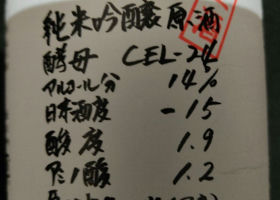 純米吟醸原酒
酵母 CEL-24
アルコール分 14%
日本酒度 -15
酸度 1.9
アミノ酸 1.2